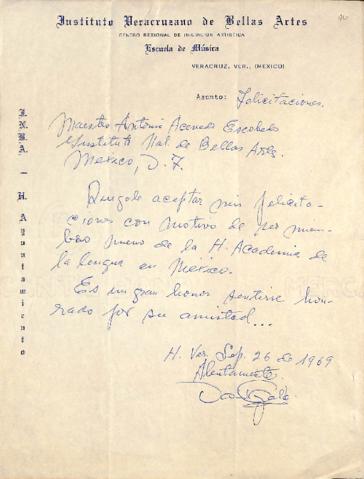 Instituto Veracruzano de Bellas Artes
CENTRO REGIONAL DE INICIACION ARTISTICA
Escuela de Música
VERACRUZ, VER., (MEXICO)
Asunto: Felicitaciones.
Maestro Antonio Acevedo Escobedo
Instituto Nal de Bellas Artes.
Mexico, D. F.
Ruégole aceptar mis felicita-
ciones con motivo de ser miem-
bro nuevo de la H. Academia de
la lengua en México.
Es un gran honor sentirse hon-
rado por su amistad...
H. Ver. Sep. 26 de 1969
Atentamente
I.N.B.A. — H. Ayuntamiento